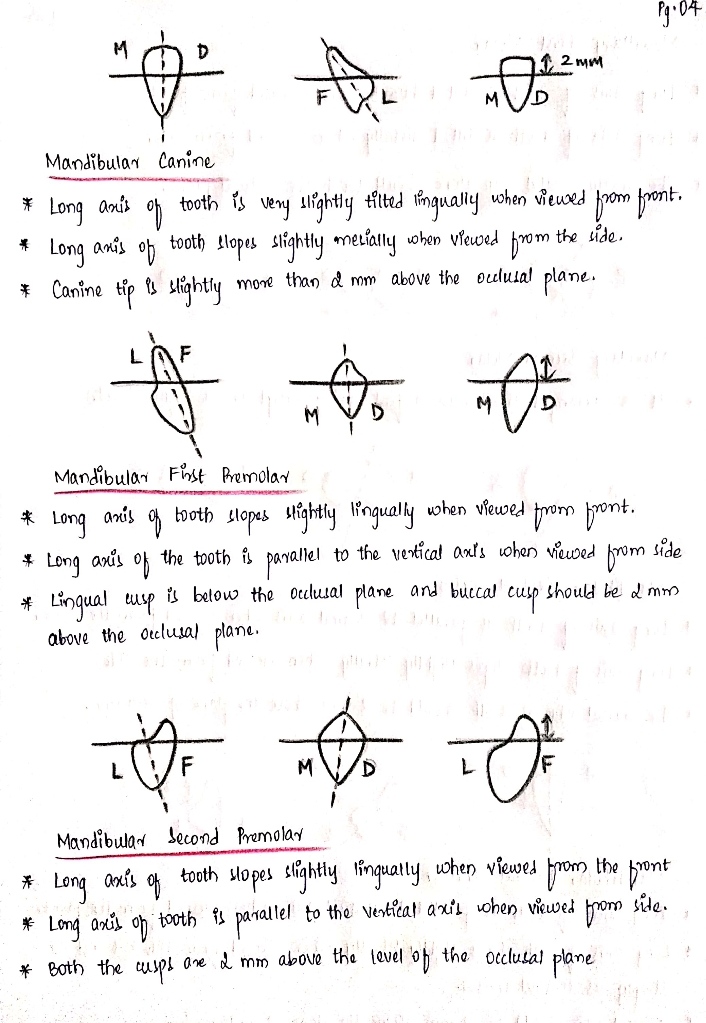 Pg.04
M D
F L
M D 2 mm
Mandibular Canine
* Long axis of tooth is very slightly tilted lingually when viewed from front.
* Long axis of tooth slopes slightly mesially when viewed from the side.
* Canine tip is slightly more than 2 mm above the occlusal plane.
L F
M D
M D
Mandibular First Premolar
* Long axis of tooth slopes slightly lingually when viewed from front.
* Long axis of the tooth is parallel to the vertical axis when viewed from side
* Lingual cusp is below the occlusal plane and buccal cusp should be 2 mm
above the occlusal plane.
L F
M D
L F
Mandibular Second Premolar
* Long axis of tooth slopes slightly lingually when viewed from the front
* Long axis of tooth is parallel to the vertical axis when viewed from side.
* Both the cusps are 2 mm above the level of the occlusal plane